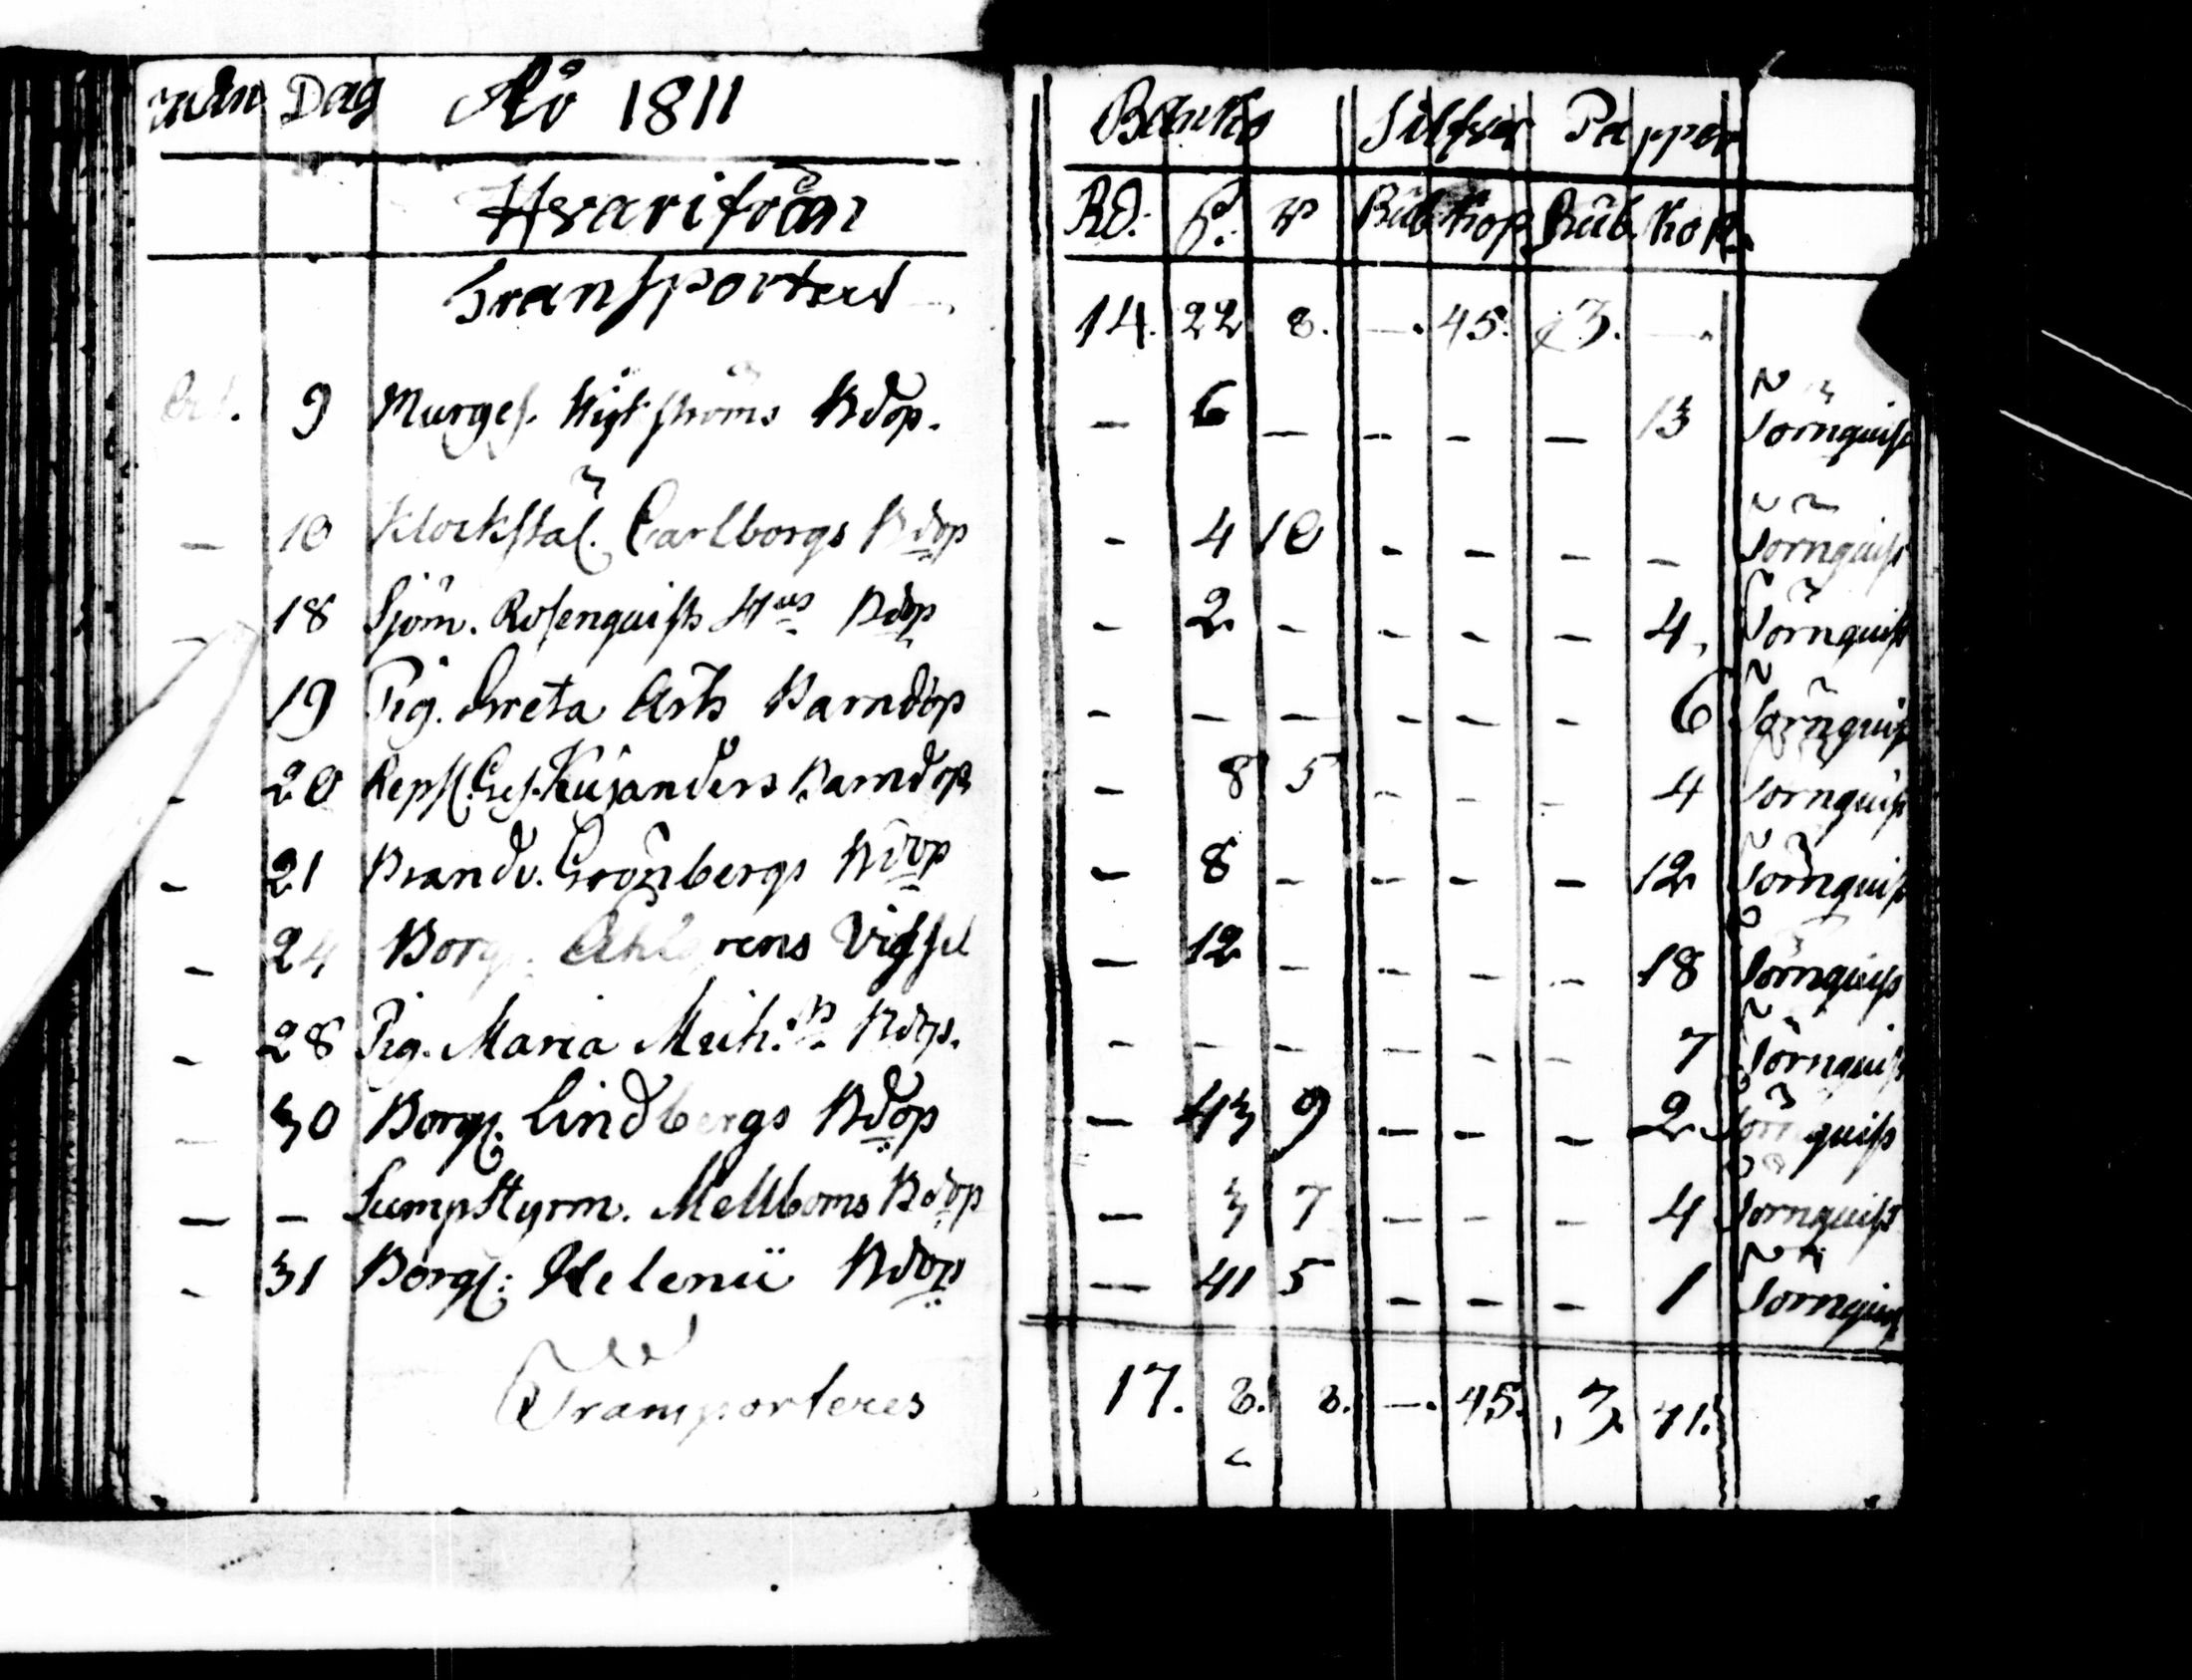 Mån Dag Åo 1811 Banko Silfver Papper
Hvarifrån Rd. ß. rp Rub. Kop. Rub. Kop.
Transporterad 14. 22 8. —. 45. 3. —.
Oct. 9 Murges. Wykströms Bdop. — 6 — — — — 13 Törnquist
— 10 Klockstäl. Carlborgs Bdop - 4 10 - - - - Törnquist
18 Sjöm. Rosenquists Hus Bdop - 2 - - - - 4. Törnquist
19 Pig. Greta Barndop - - - - - - 6 Törnquist
- 20 Repsl. Ges. Kujanders Barndop - 8 5 - - - 4 Törnquist
- 21 Brandv. Grönbergs Bdop - 8 - - - - 12 Törnquist
- 24 Borg. Ahlgrens Vigsel - 12 - - - - 18 Törnquist
- 28 Pig. Maria Mich. Bdop. - - - - - - 7 Törnquist
- 30 Borgs. Lindbergs Bdop — 43 9 - - - 2 Törnquist
— - Sump Styrm. Mellboms Bdop — 3 7 - - - 4 Törnquist
- 31 Borgs: Helenii Bdop — 41 5 - - - 1 Törnquist
Transporteres 17. 8. 8. —. 45. 3. 71.